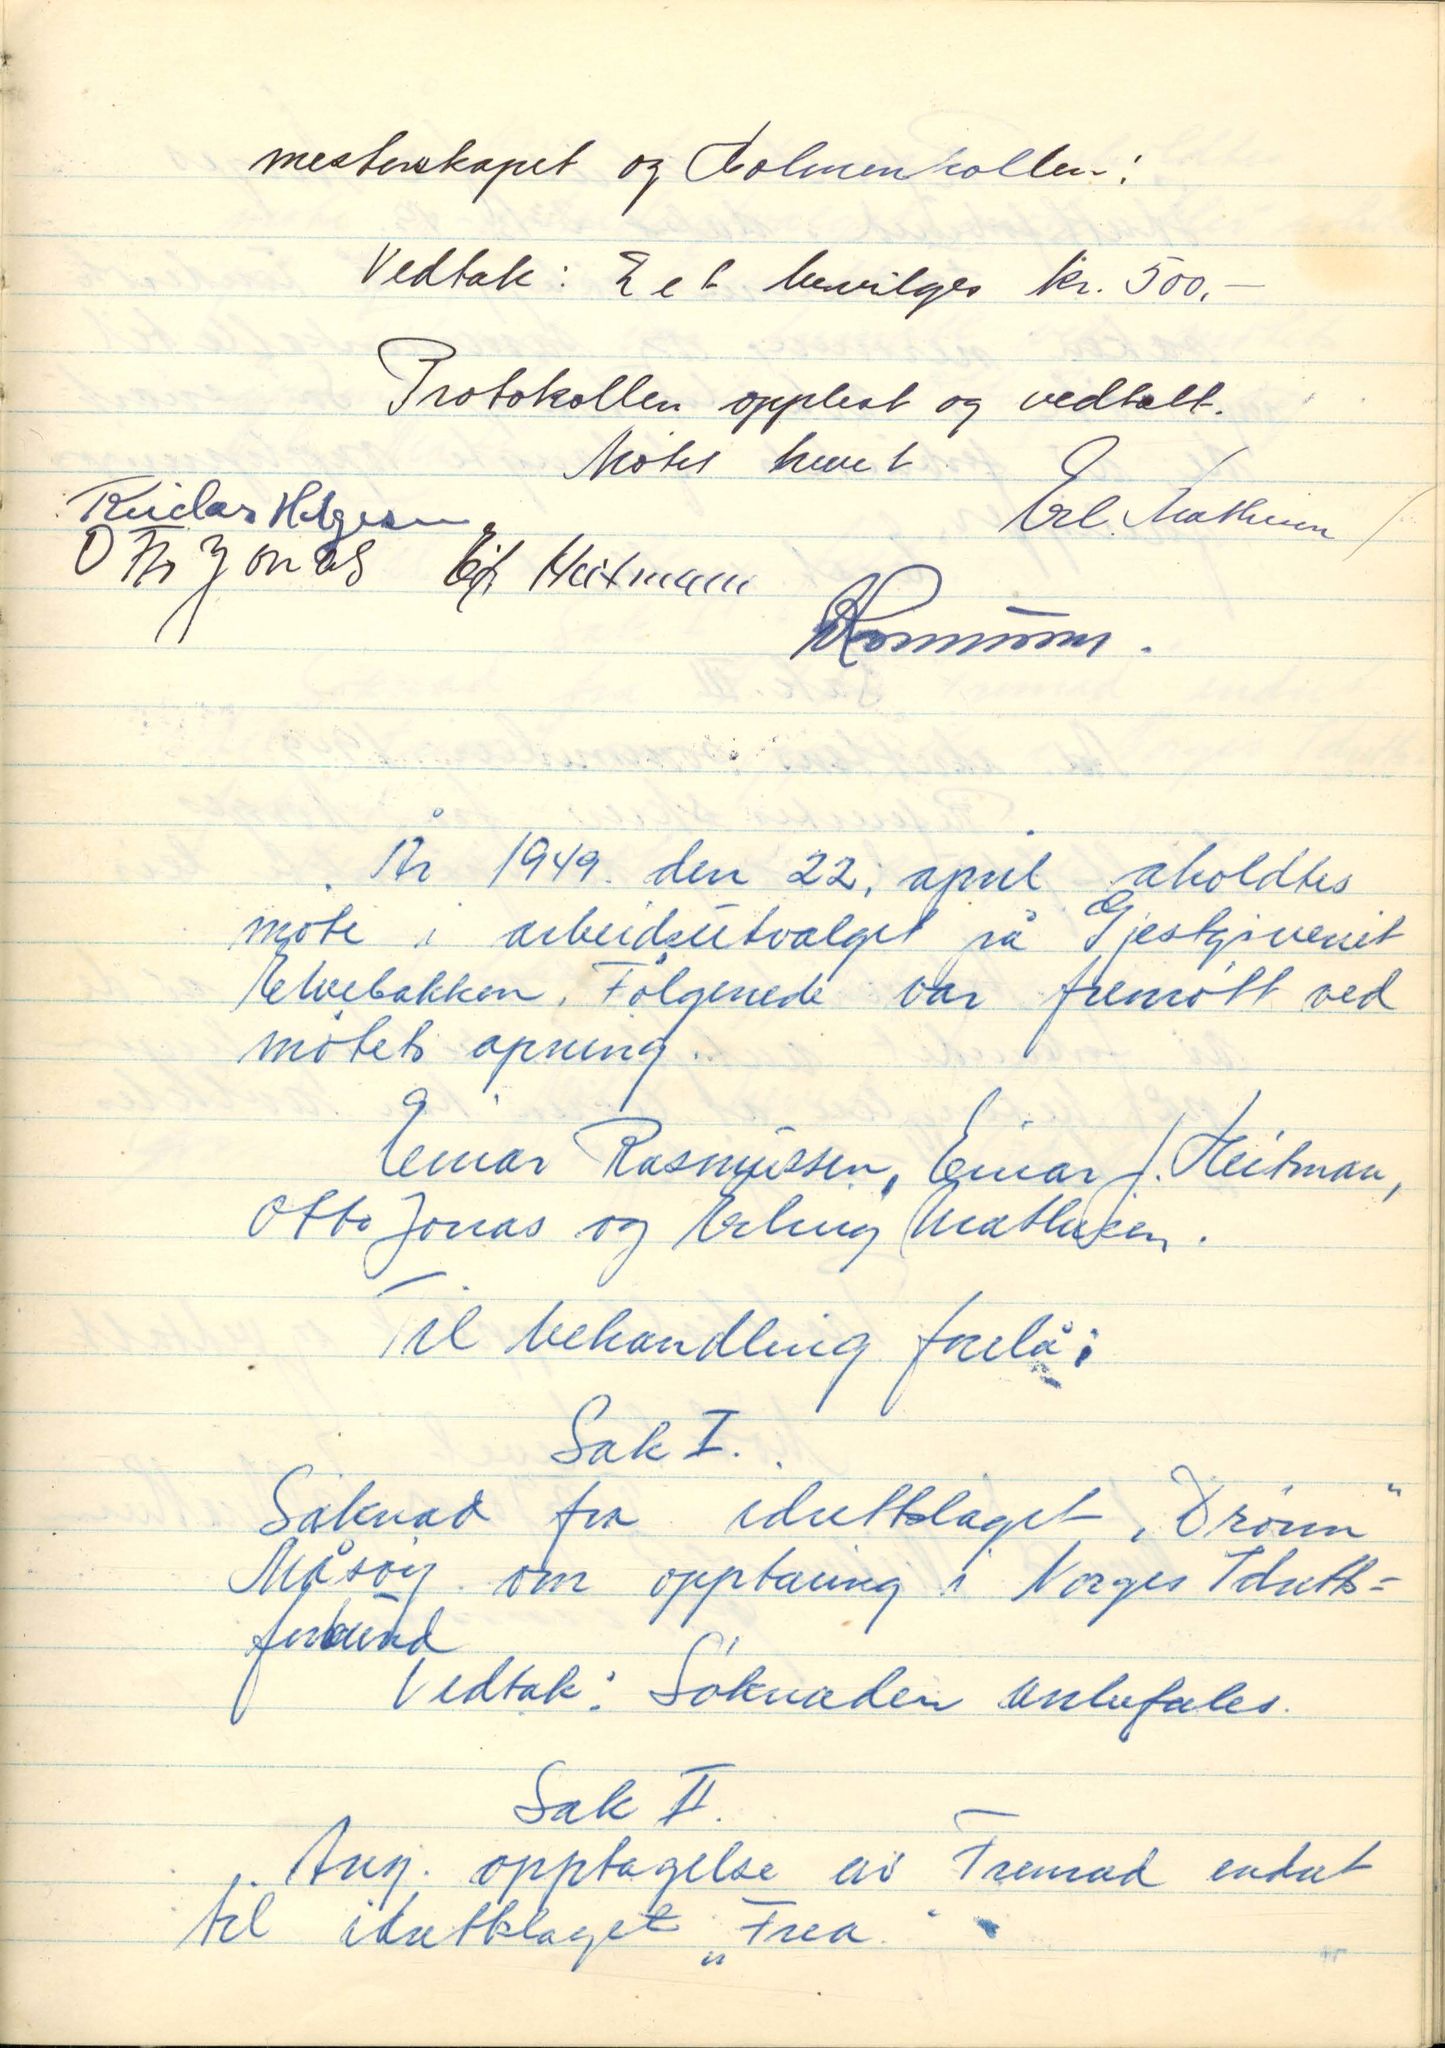 mesterskapet og Holmenkollen:
Vedtak: Det bevilges kr. 500,-
Protokollen opplest og vedtatt.
Møtet hevet.
Erl. Mathisen
Reidar Helgesen
Otto Jonas Ein Heitmann
ERasmussen.
År 1949 den 22. april aholdtes
møte i arbeidsutvalget på Gjestgiveriet
Elvebakken. Følgenede var fremøtt ved
møtets åpning.
Einar Rasmussen, Einar J. Heitman,
Otto Jonas og Erling Mathisen.
Til behandling forelå:
Sak I.
Søknad fra idrettslaget „Drønn"
Måsøy om opptaing i Norges Idretts=
forbund
Vedtak: Søknaden anbefales.
Sak II.
Ang. opptagelse av Fremad endret
til idrettslaget „Frea"